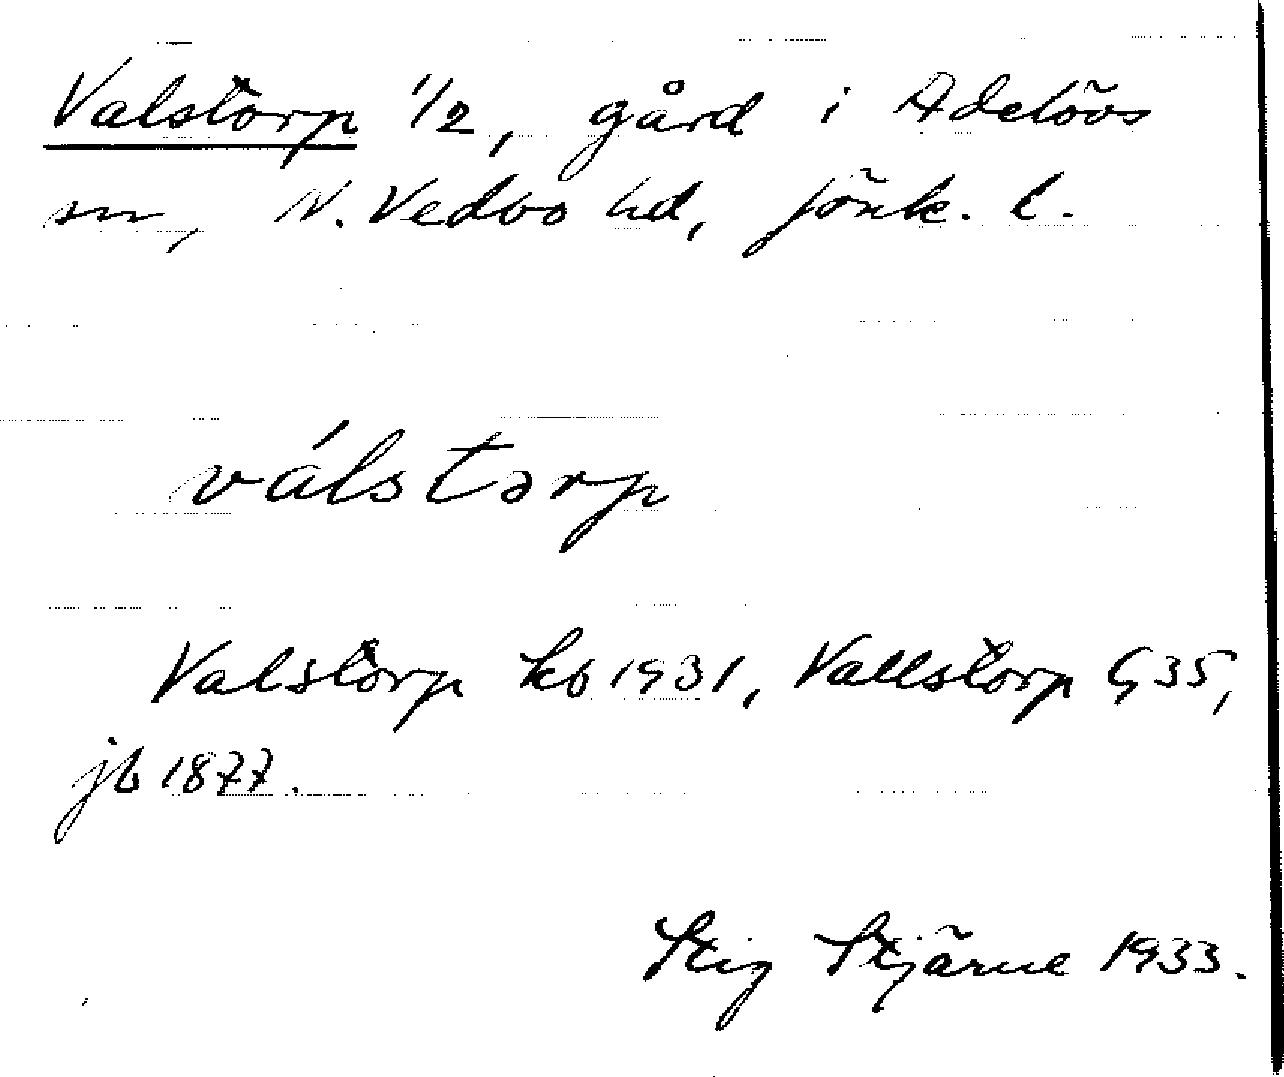 Valstorp 1/2, gård i Adelövs
sn, N. Vedbo hd, Jönk. l.
válstorp
Valstorp kb 1931, Vallstorp G 35,
jb 1877.
Stig Stjärne 1933.